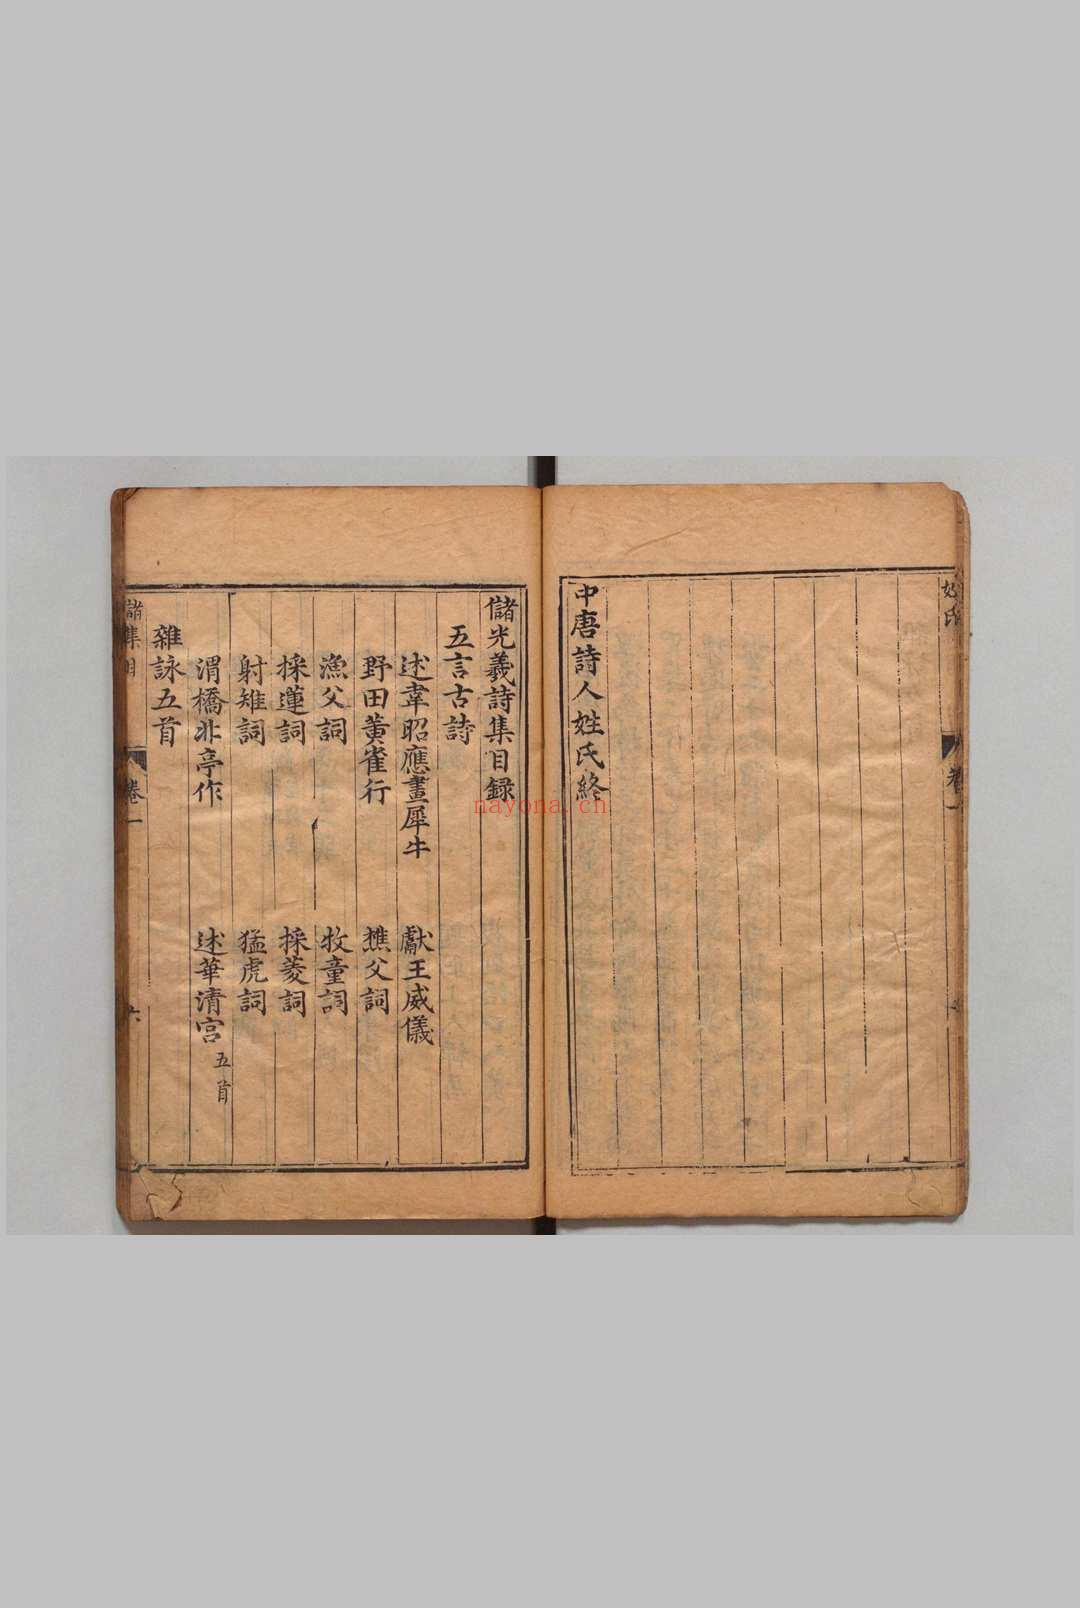 姓氏
卷一
中唐詩人姓氏終
儲光義詩集目録
五言古詩
述韋昭應畫犀牛
獻王威儀
野田黄雀行
樵父詞
漁父詞
牧童詞
採蓮詞
採菱詞
射雉詞
猛虎詞
渭橋北亭作
述華清宫五首
雜詠五首
儲集目
卷一
六
nayona.cn